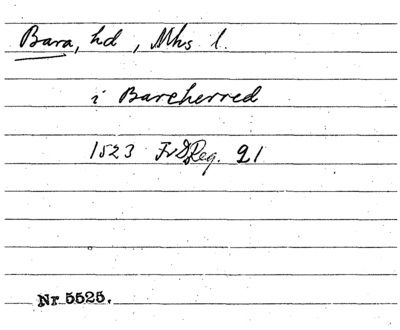 Bara, hd, Mhs l.
i Bareherred
1523 FrIsReg. 21
Nr 5525.